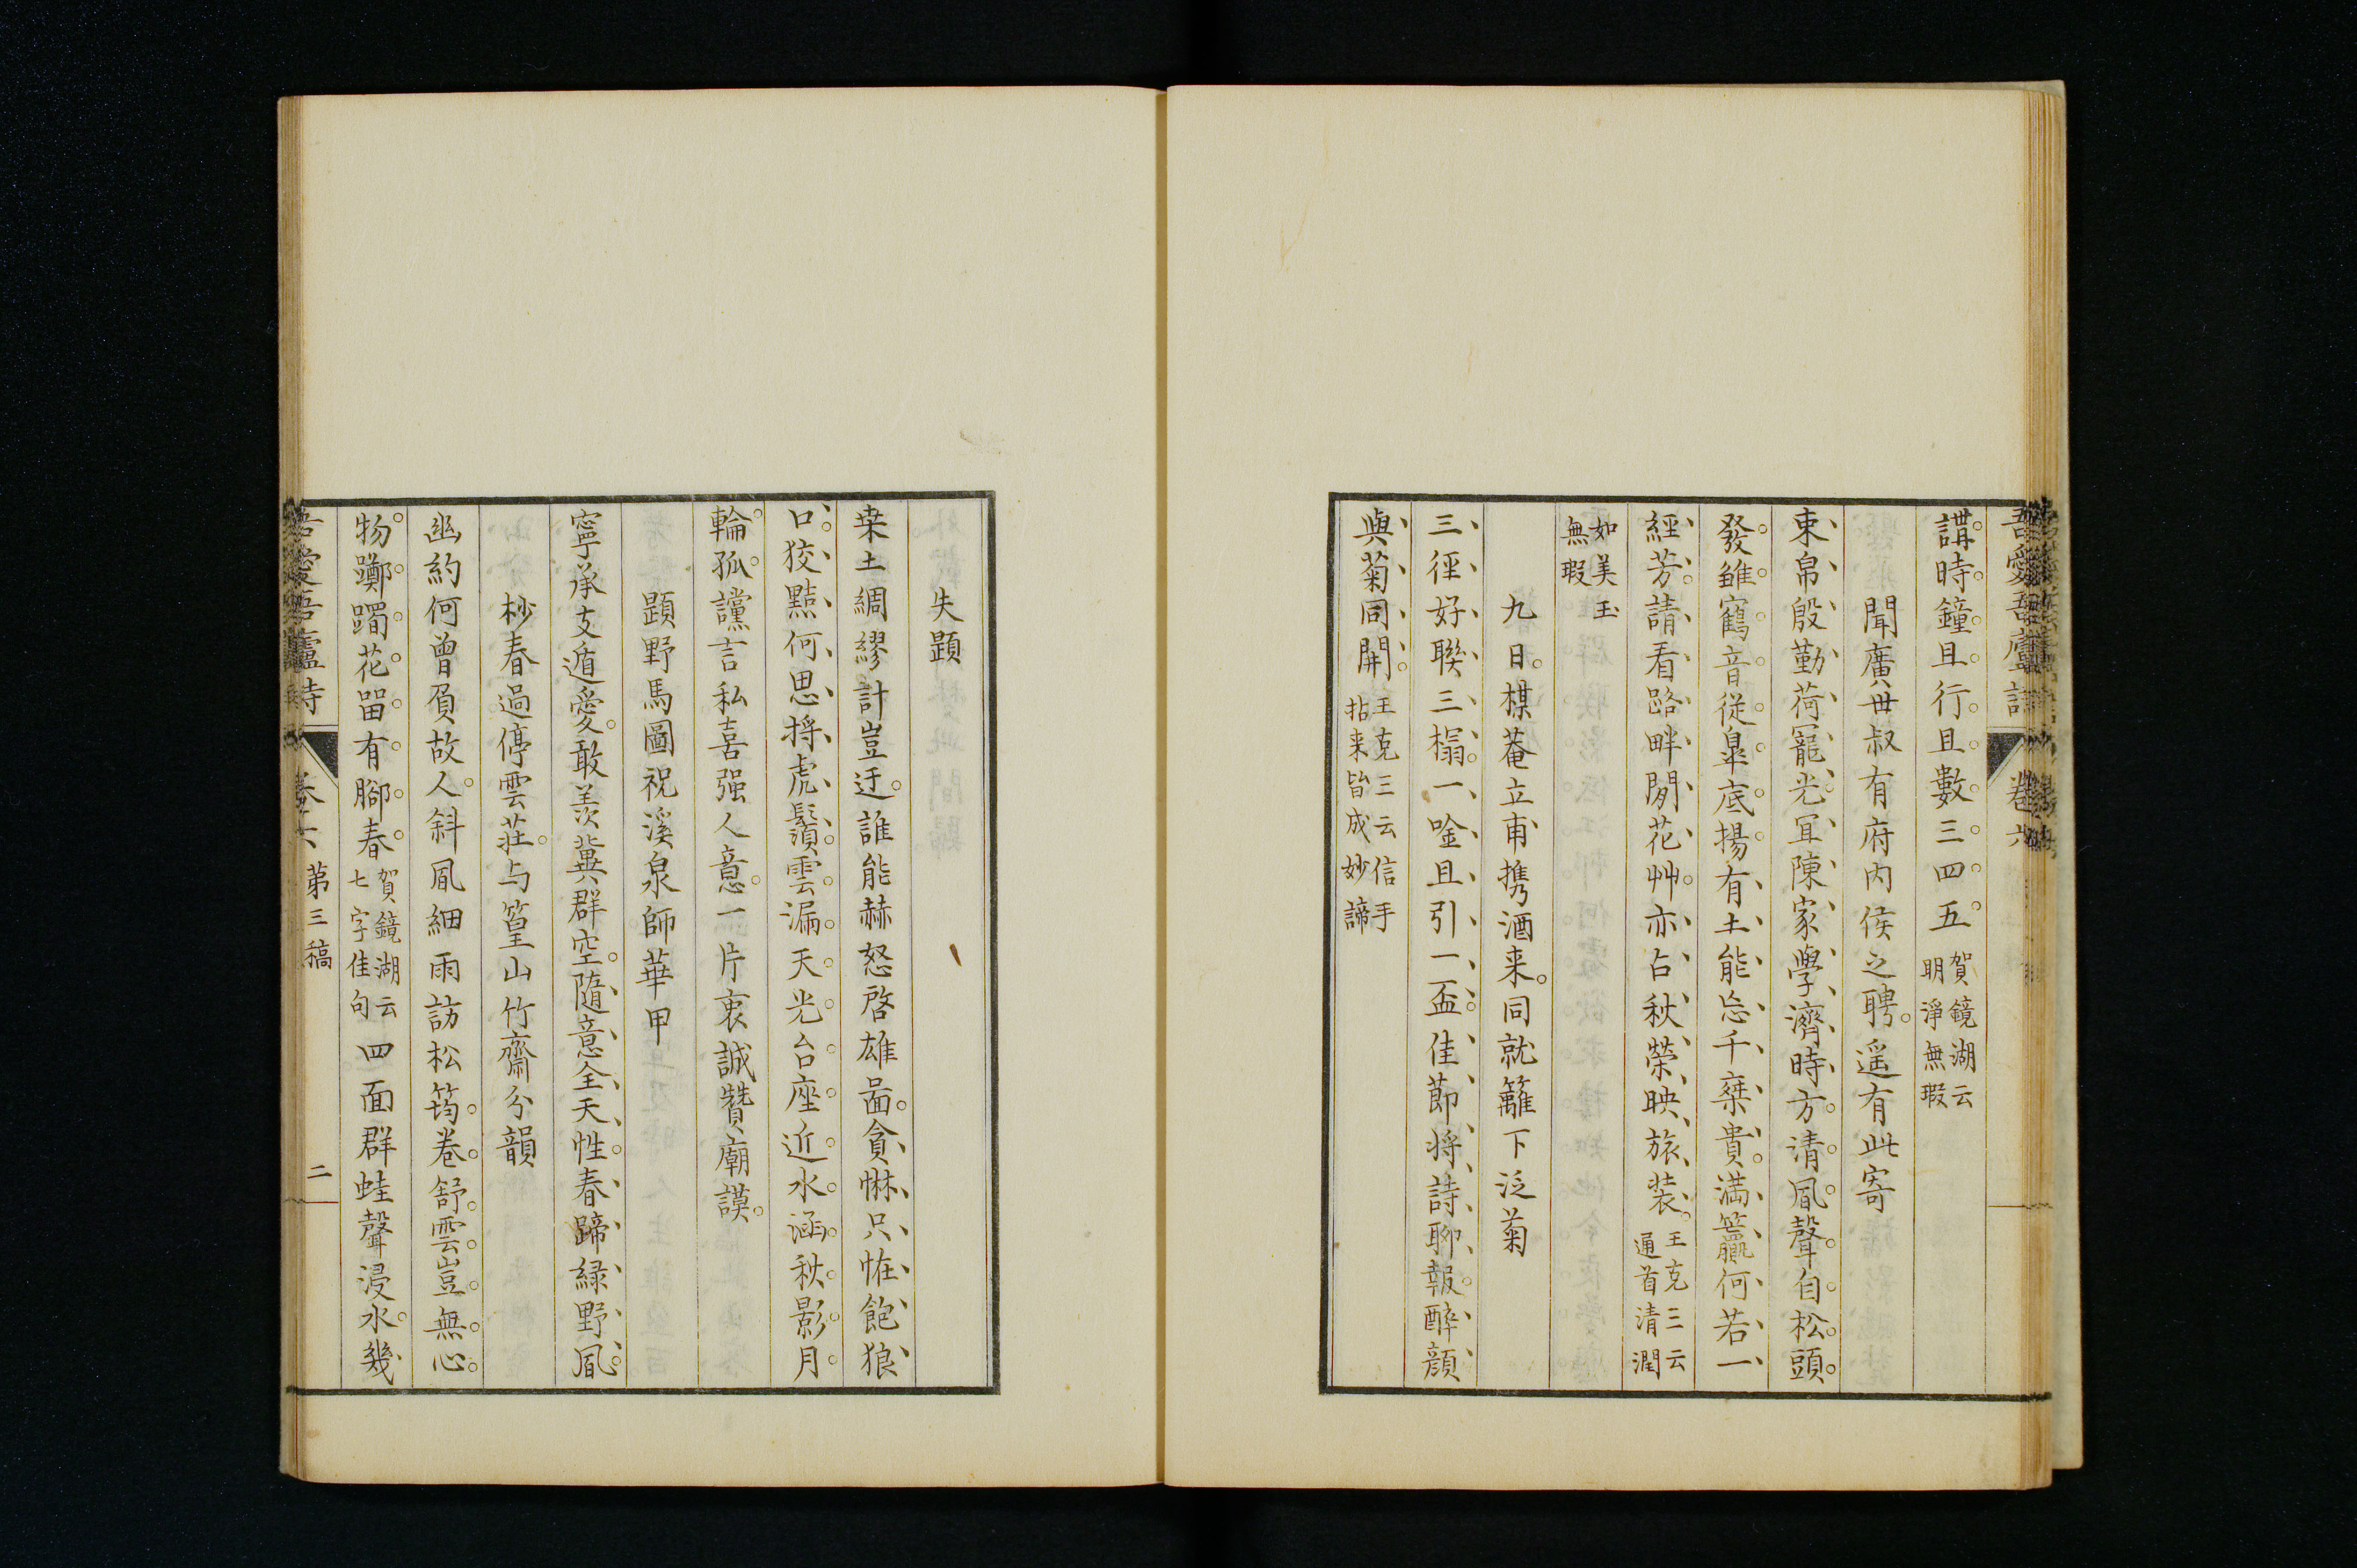 吾愛吾廬詩 卷六
講時鐘且行且數三四五 賀鏡湖云明淨無瑕
聞廣毋叔有府内侯之聘遥有此寄
束帛殷勤荷寵光冝陳家學濟時方清風聲自松頭
發雏鶴音從臯底揚有土能忘千椉貴満籯何若一
經芳請看路畔閒花艸亦占秋榮映旅装 王克三云通首清潤
如美玉無瑕
九日楳菴立甫携酒来同就籬下泛菊
三徑好聯三榻一唫且引一盃佳莭将詩聊報醉顔
與菊同開 王克三云信手拈来皆成妙諦
失題
桒土綢繆計豈迂誰能赫怒啓雄啚貪惏只恠飽狼
口狡黠何思将虎鬚雲漏天光台座近水涵秋影月
輪孤讜言私喜强人意一片衷誠贊廟謨
題野馬圖祝溪泉師華甲
寧承支遁愛敢羨冀群空隨意全天性春蹄緑野風
杪春過停雲莊与篁山竹齋分韻
幽約何曾負故人斜風細雨訪松筠卷舒雲豈無心
物躑躅花留有腳春 賀鏡湖云七字佳句 四面群蛙聲浸水幾
吾愛吾廬詩 卷六 第三稿 二